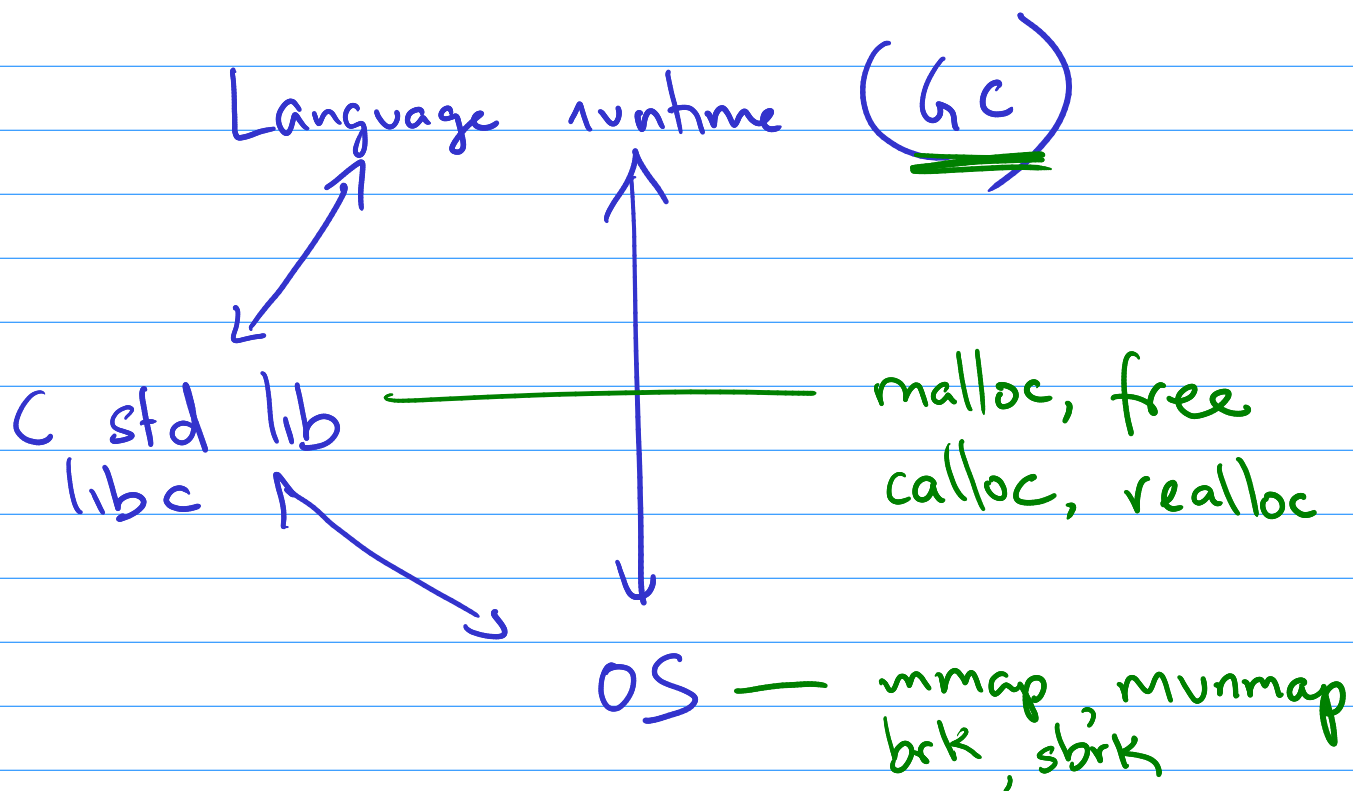 Language runtime (GC)
C std lib malloc, free
libc calloc, realloc
OS — mmap, munmap
brk, sbrk